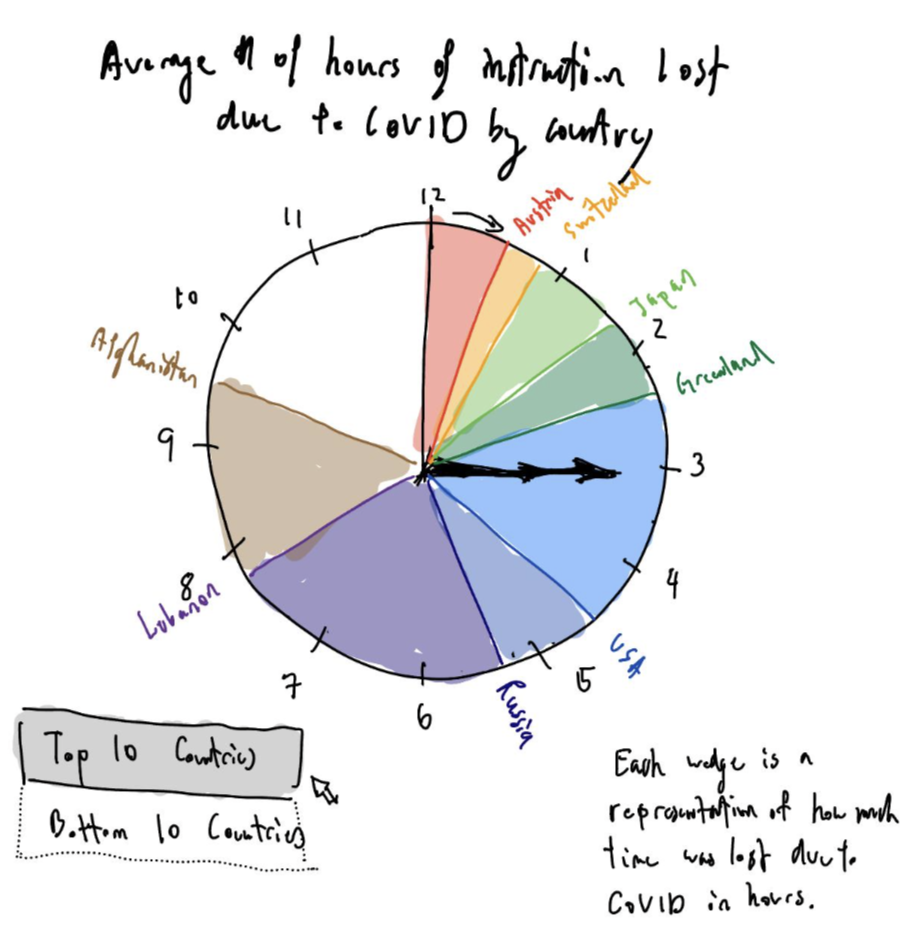 Average # of hours of instruction lost
due to COVID by country
12
Austria
Switzerland
11
1
10
Japan
2
Afghanistan
Greenland
9
3
8
4
Lebanon
USA
7
5
Russia
6
Top 10 Countries
Bottom 10 Countries
Each wedge is a
representation of how much
time was lost due to
COVID in hours.